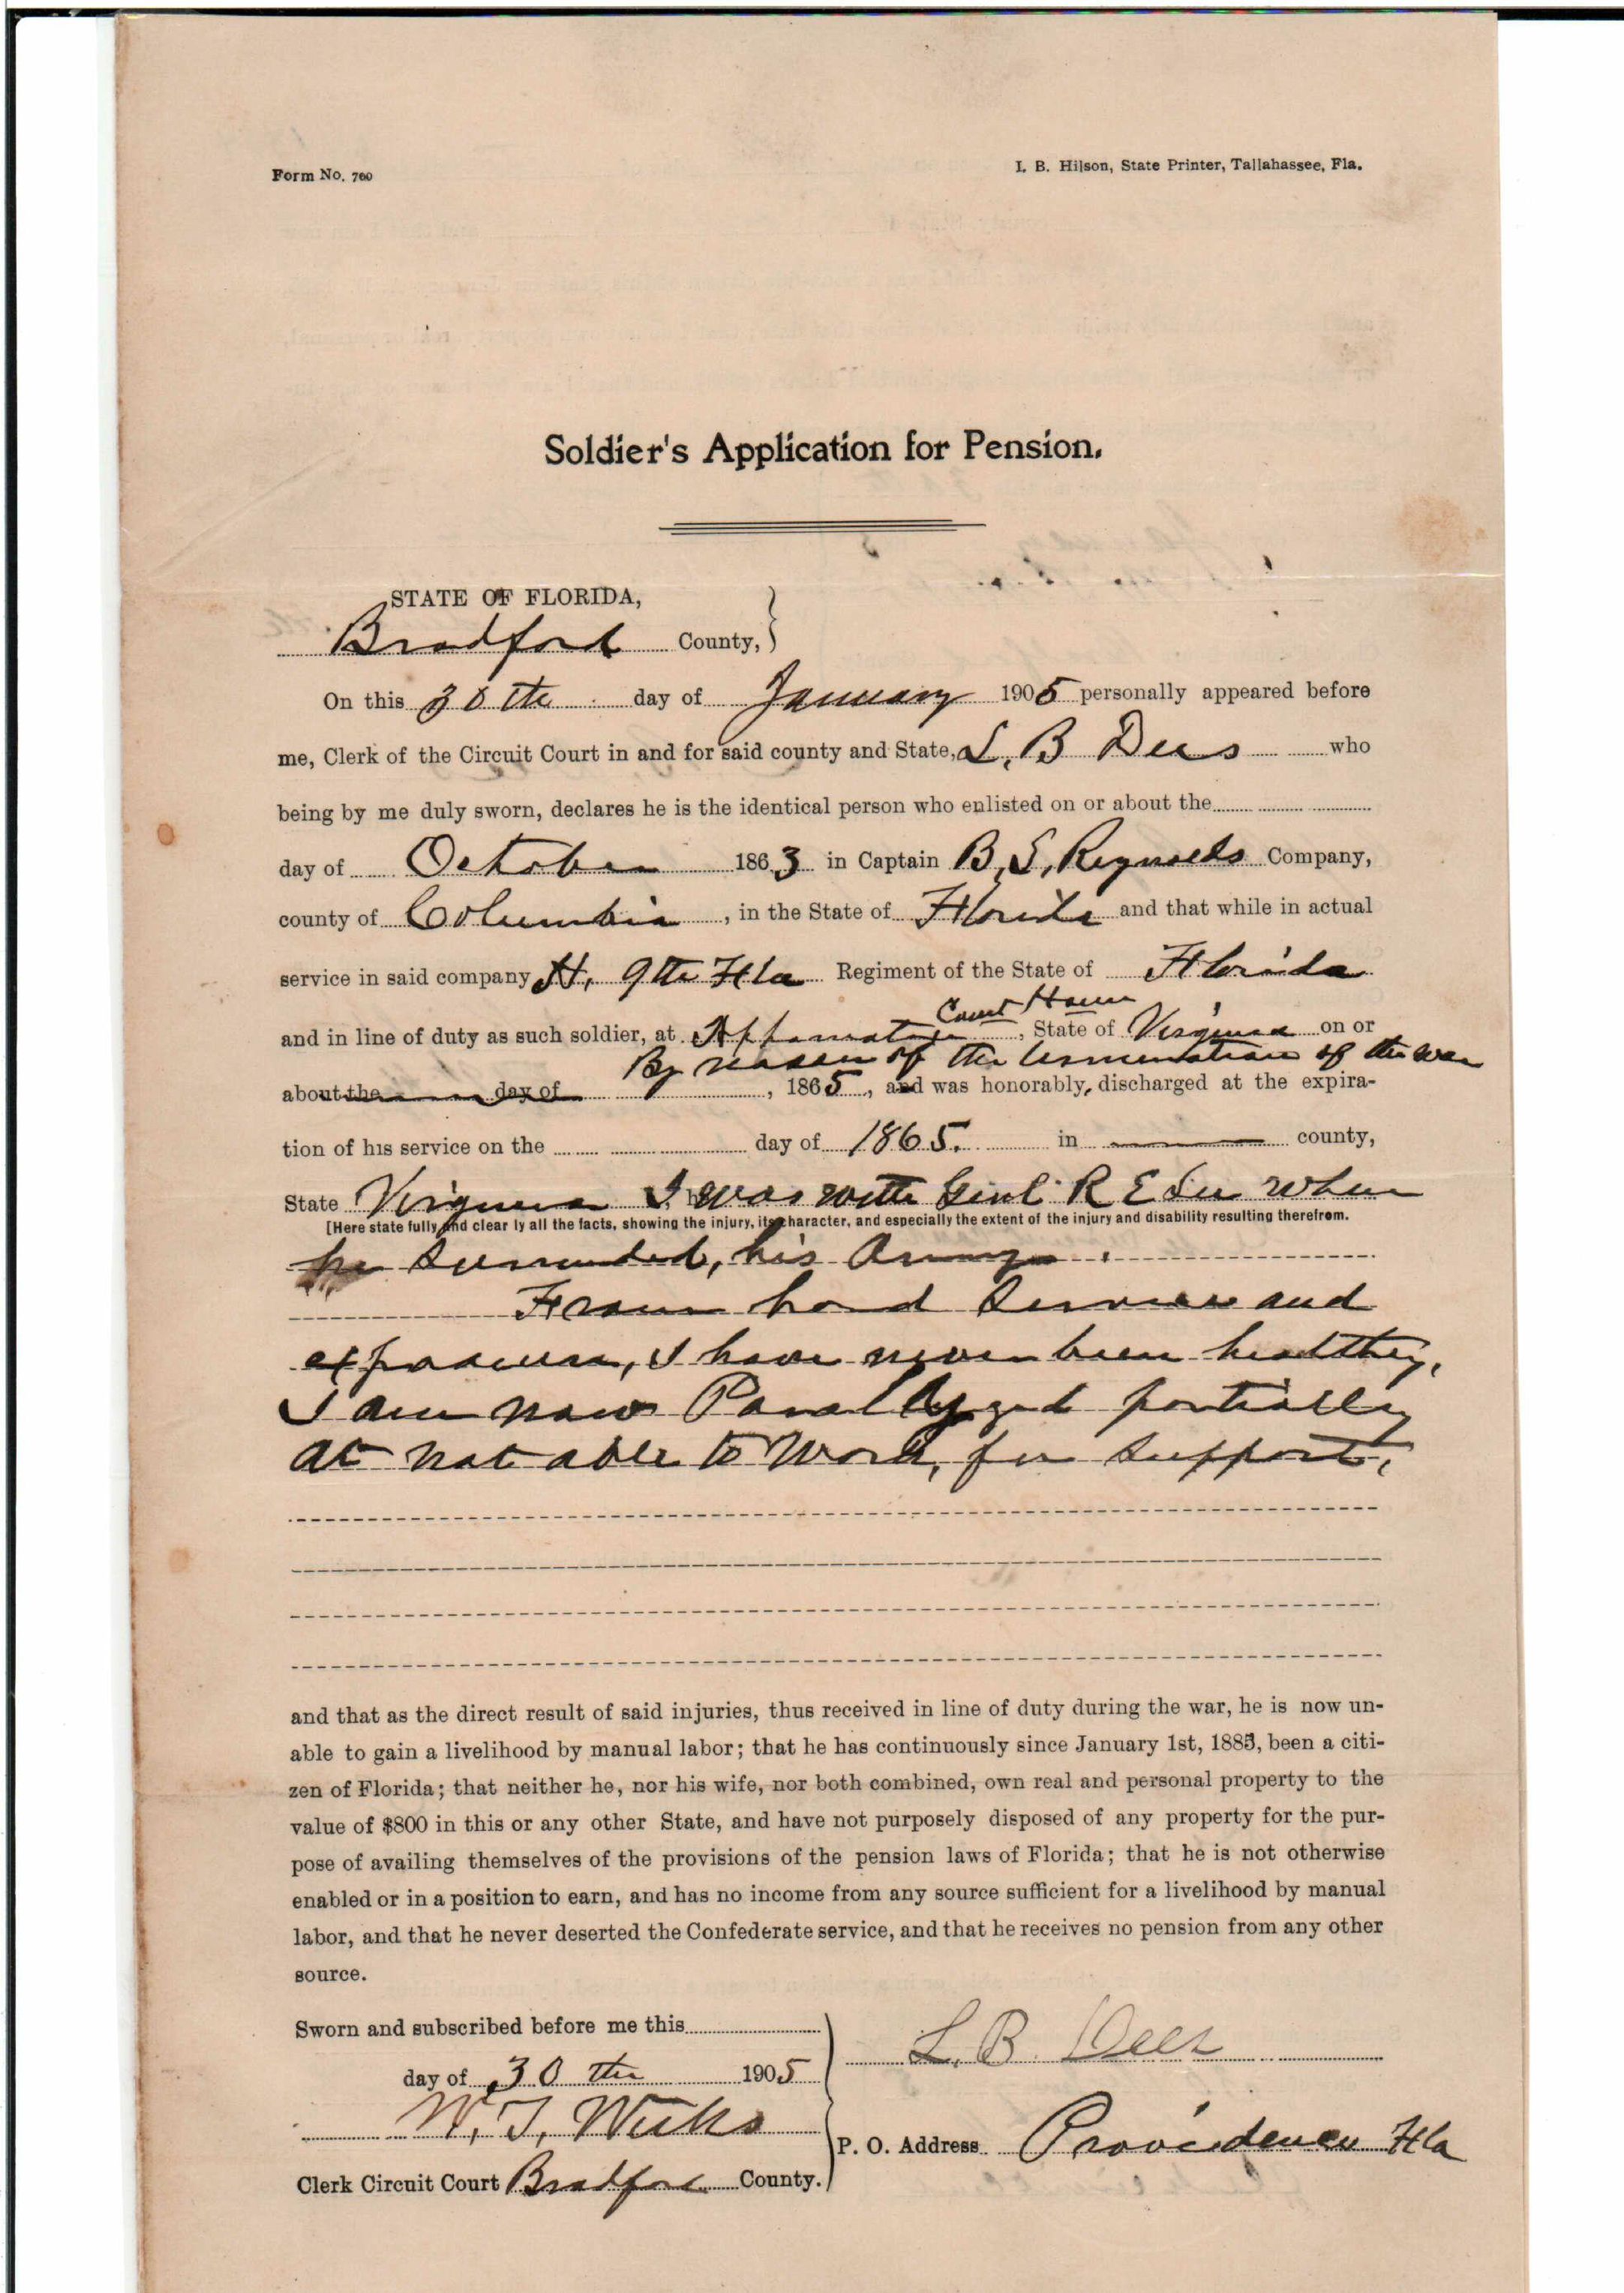 Form No. 760
I. B. Hilson, State Printer, Tallahassee, Fla.
Soldier's Application for Pension.
STATE OF FLORIDA,
Bradford County,
On this 30th day of January 1905 personally appeared before
me, Clerk of the Circuit Court in and for said county and State, L. B Dees who
being by me duly sworn, declares he is the identical person who enlisted on or about the
day of October 1863 in Captain B, S, Reynolds Company,
county of Columbia, in the State of Florida and that while in actual
service in said company H, 9th Fla Regiment of the State of Florida
Court House
and in line of duty as such soldier, at Appomatox, State of Virginia on or
By reason of the termination of the war
about the day of , 1865, and was honorably, discharged at the expira-
tion of his service on the day of 1865. in county,
State Virginia I was with Genl R E Lee when
[Here state fully and clear ly all the facts, showing the injury, its character, and especially the extent of the injury and disability resulting therefrom.
he surrended, his Army.
From hard Service and
exposure, I have never been healthy,
I am now Parallyzed partially
at not able to Work, for support,
and that as the direct result of said injuries, thus received in line of duty during the war, he is now un-
able to gain a livelihood by manual labor; that he has continuously since January 1st, 1885, been a citi-
zen of Florida; that neither he, nor his wife, nor both combined, own real and personal property to the
value of $800 in this or any other State, and have not purposely disposed of any property for the pur-
pose of availing themselves of the provisions of the pension laws of Florida; that he is not otherwise
enabled or in a position to earn, and has no income from any source sufficient for a livelihood by manual
labor, and that he never deserted the Confederate service, and that he receives no pension from any other
source.
Sworn and subscribed before me this
day of 30th 1905
L. B. Dees
W. T. Weeks
P. O. Address Providence Fla
Clerk Circuit Court Bradford County.